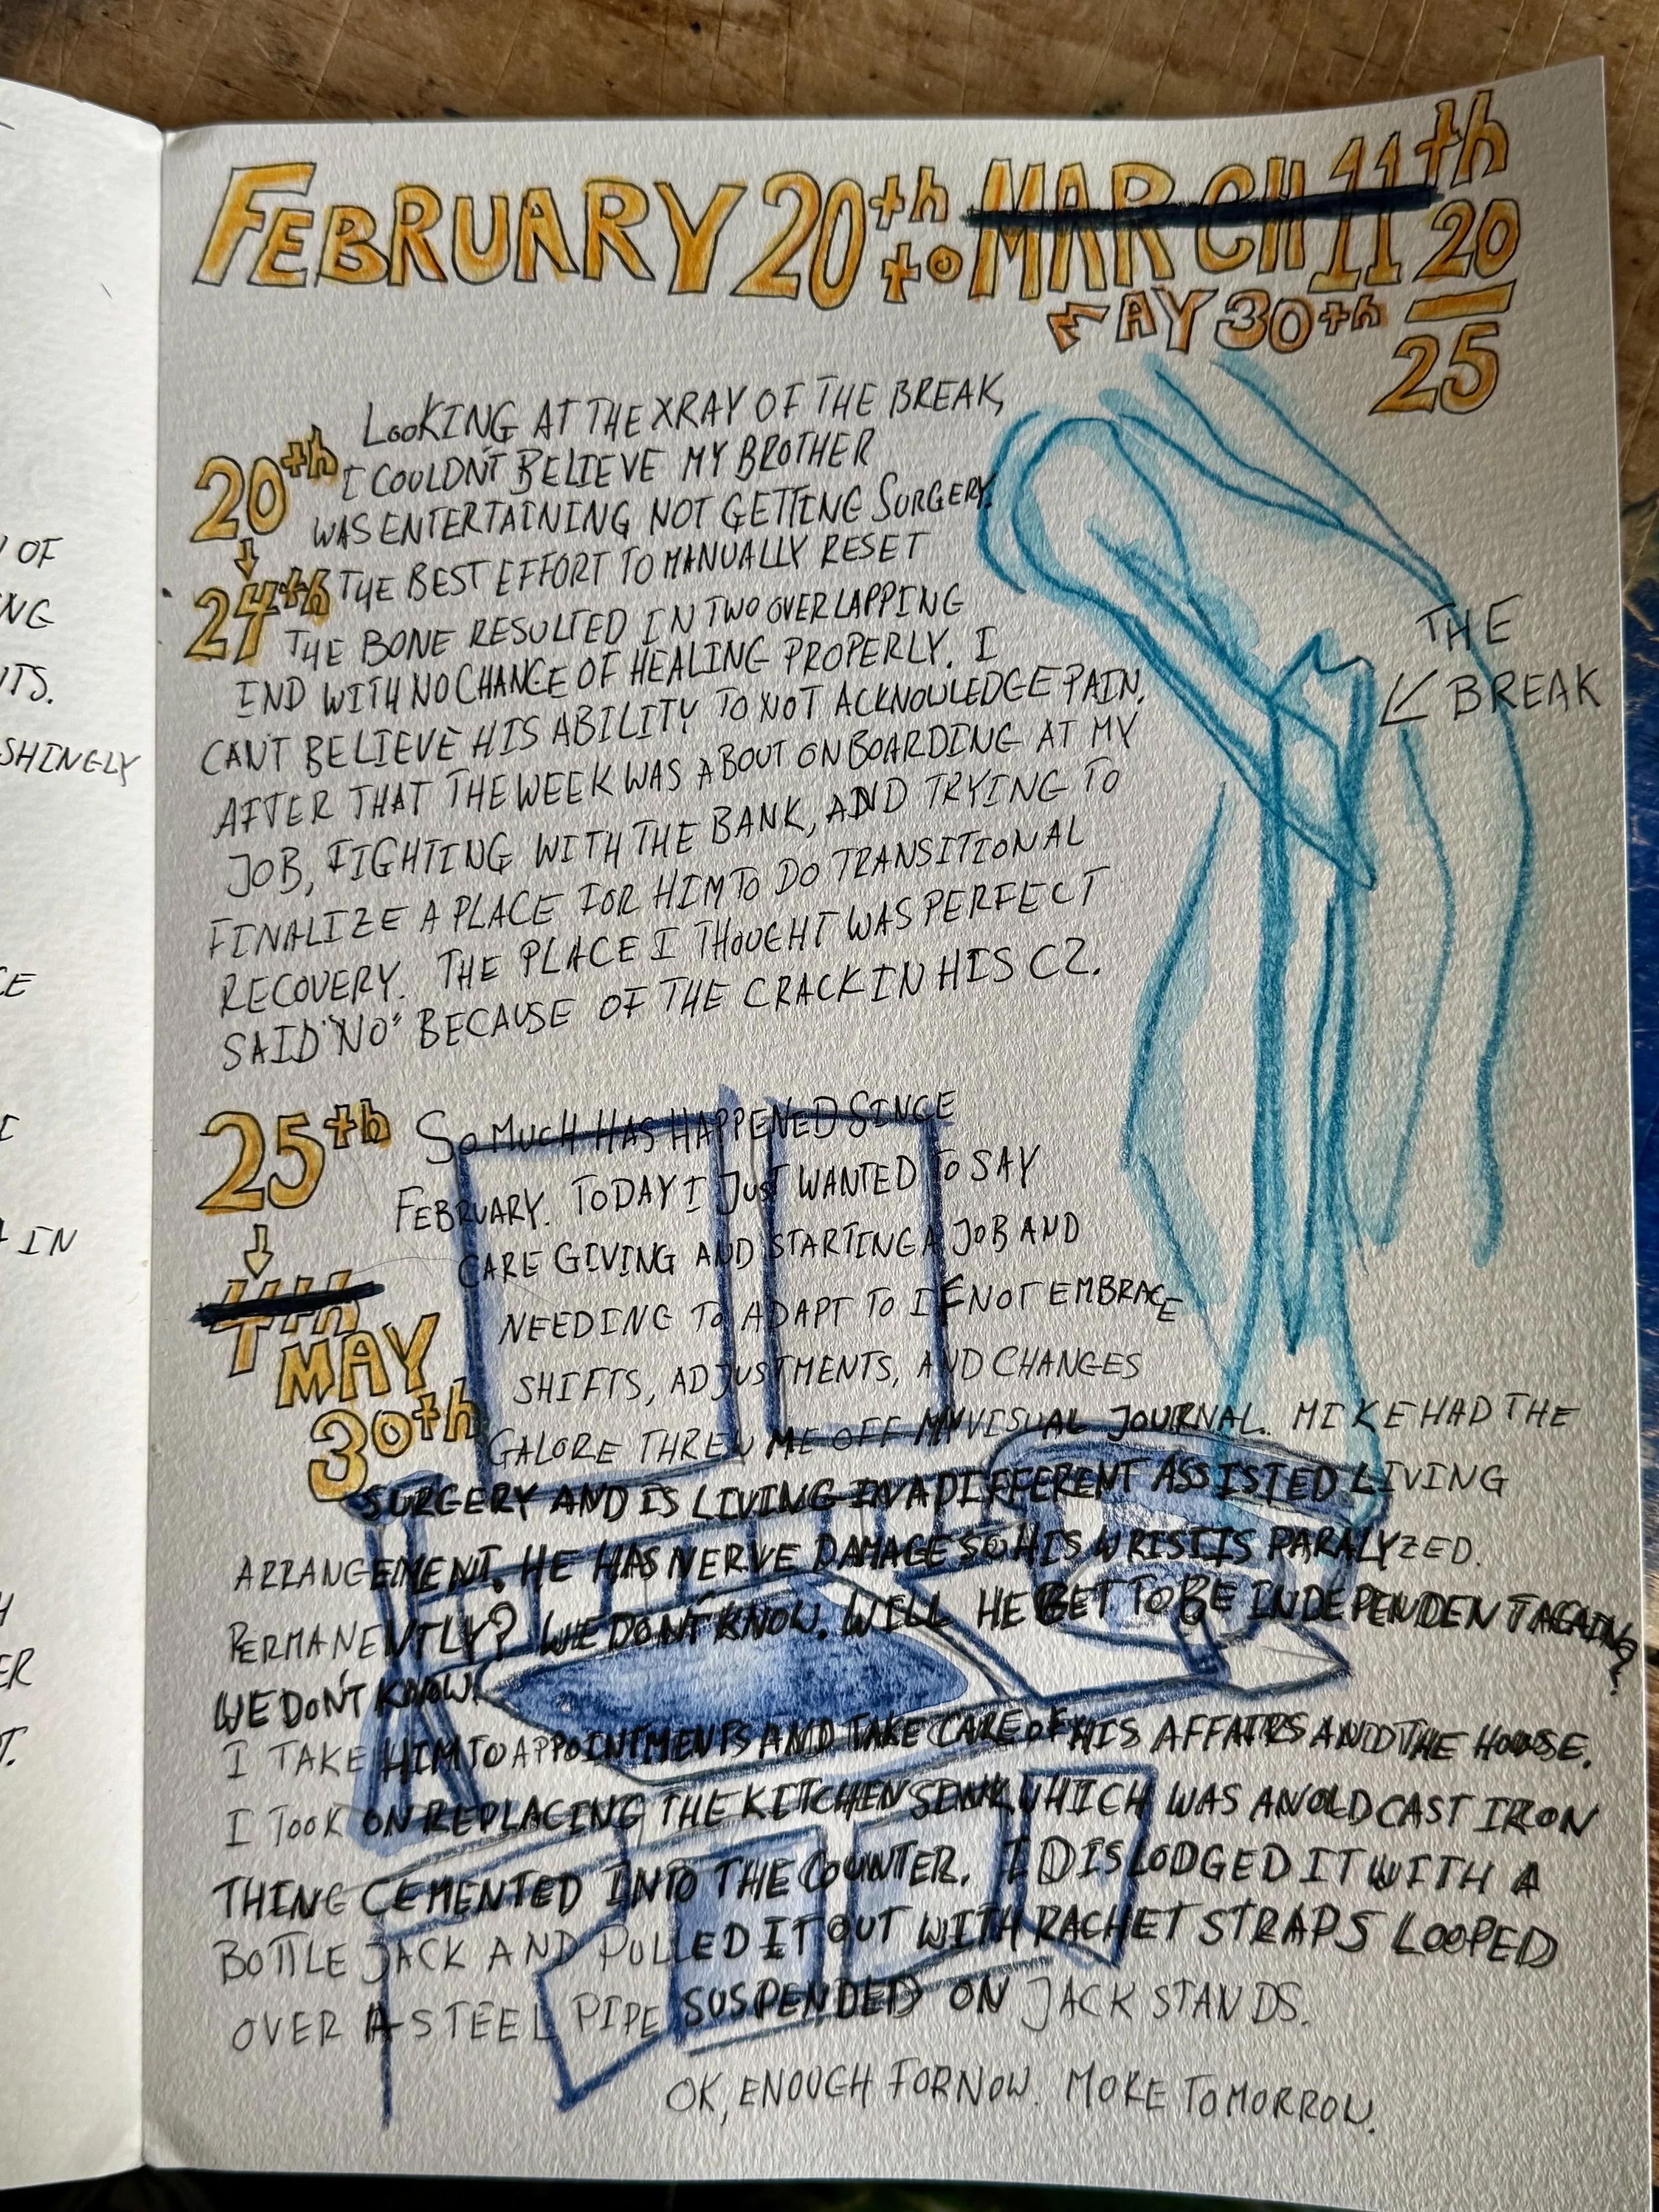 OF
NG
TS.
SHINGLY
CE
IN
H
ER
T.
FEBRUARY 20th to MARCH 11th 20
MAY 30th 25
20th
24th
LOOKING AT THE XRAY OF THE BREAK,
I COULDN'T BELIEVE MY BROTHER
WAS ENTERTAINING NOT GETTING SURGERY.
THE BEST EFFORT TO MANUALLY RESET
THE BONE RESULTED IN TWO OVERLAPPING
END WITH NO CHANCE OF HEALING PROPERLY. I
CAN'T BELIEVE HIS ABILITY TO NOT ACKNOWLEDGE PAIN.
AFTER THAT THE WEEK WAS ABOUT ONBOARDING AT MY
JOB, FIGHTING WITH THE BANK, AND TRYING TO
FINALIZE A PLACE FOR HIM TO DO TRANSITIONAL
RECOVERY. THE PLACE I THOUGHT WAS PERFECT
SAID "NO" BECAUSE OF THE CRACK IN HIS C2.
THE
BREAK
25th
4th
MAY
30th
SO MUCH HAS HAPPENED SINCE
FEBRUARY. TODAY I JUST WANTED TO SAY
CARE GIVING AND STARTING A JOB AND
NEEDING TO ADAPT TO IF NOT EMBRACE
SHIFTS, ADJUSTMENTS, AND CHANGES
GALORE THREW ME OFF MY VISUAL JOURNAL. MIKE HAD THE
SURGERY AND IS LIVING IN A DIFFERENT ASSISTED LIVING
ARRANGEMENT. HE HAS NERVE DAMAGE SO HIS WRIST IS PARALYZED.
PERMANENTLY? WE DON'T KNOW. WILL HE GET TO BE INDEPENDENT AGAIN?
WE DON'T KNOW.
I TAKE HIM TO APPOINTMENTS AND TAKE CARE OF HIS AFFAIRS AND THE HOUSE.
I TOOK ON REPLACING THE KITCHEN SINK WHICH WAS AN OLD CAST IRON
THING CEMENTED INTO THE COUNTER. I DISLODGED IT WITH A
BOTTLE JACK AND PULLED IT OUT WITH RACHET STRAPS LOOPED
OVER A STEEL PIPE SUSPENDED ON JACK STANDS.
OK, ENOUGH FOR NOW. MORE TOMORROW.